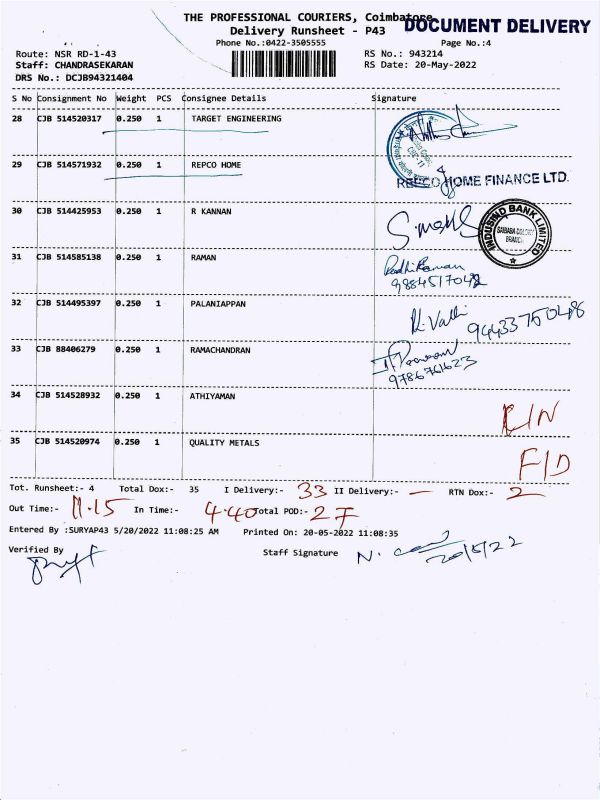 THE PROFESSIONAL COURIERS, Coimbatore
DOCUMENT DELIVERY
Delivery Runsheet - P43
Phone No.:0422-3505555
Page No.:4
Route: NSR RD-1-43
RS No.: 943214
Staff: CHANDRASEKARAN
RS Date: 20-May-2022
DRS No.: DCJB94321404
S No Consignment No Weight PCS Consignee Details Signature
28 CJB 514520317 0.250 1 TARGET ENGINEERING
29 CJB 514571932 0.250 1 REPCO HOME
REPCO HOME FINANCE LTD.
30 CJB 514425953 0.250 1 R KANNAN
INDUSIND BANK LIMITED
SAIBABA COLONY
BRANCH
31 CJB 514585138 0.250 1 RAMAN
RadhiRaman
32 CJB 514495397 0.250 1 PALANIAPPAN
R. Valli
33 CJB 88406279 0.250 1 RAMACHANDRAN
9786761623
34 CJB 514528932 0.250 1 ATHIYAMAN
35 CJB 514520974 0.250 1 QUALITY METALS
Tot. Runsheet:- 4 Total Dox:- 35 I Delivery:- 33 II Delivery:- — RTN Dox:- 2
Out Time:- 11.15 In Time:- 4.40 Total POD:- 27
Entered By :SURYAP43 5/20/2022 11:08:25 AM Printed On: 20-05-2022 11:08:35
Verified By
Staff Signature 20/5/22